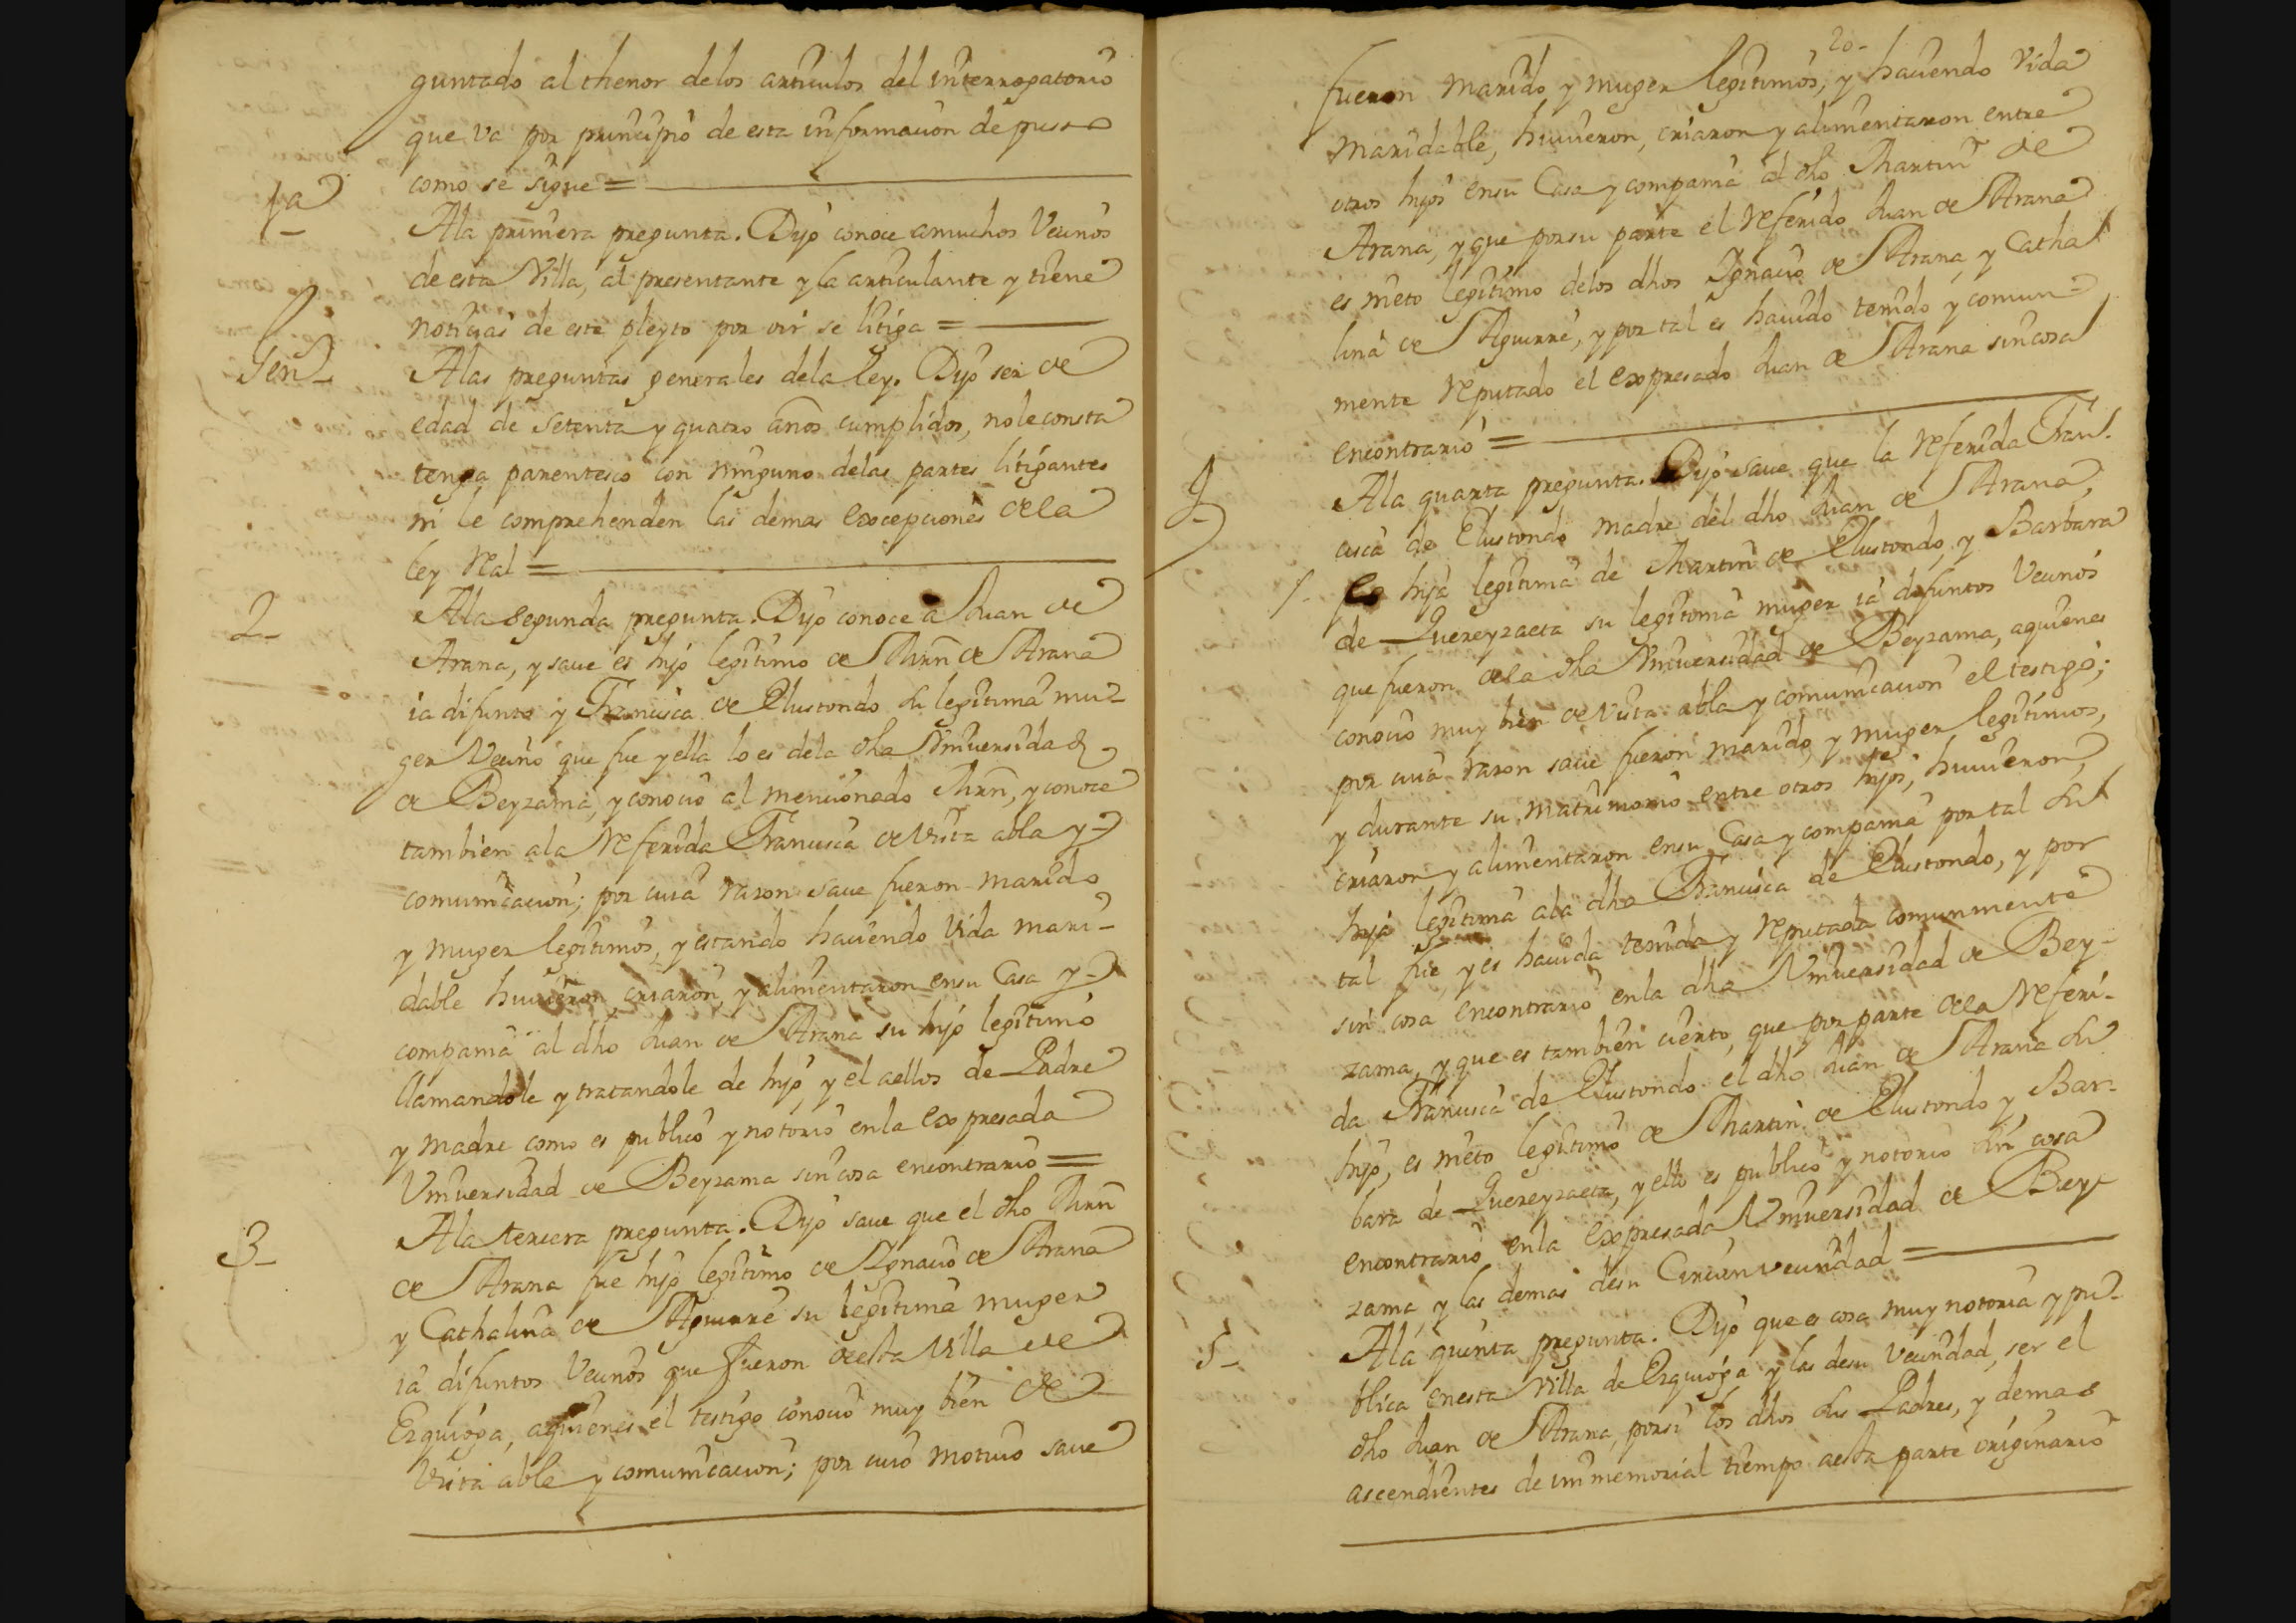 guntado al thenor delos articulos del interrogatorio
que va por principio de esta informacion depuso
como se sigue =
1a
Ala primera pregunta. Dijo conoce amuchos Vecinos
de esta Villa, al presentante y la articulante y tiene
noticias de este pleyto por oir se litiga =
Gen
Alas preguntas generales dela ley. Dijo ser de
edad de setenta y quatro años cumplidos, nole consta
tenga parentesco con ninguno delas partes litigantes
ni le comprehenden las demas excepciones dela
ley Real =
2
Ala segunda pregunta. Dijo conoce a Juan de
Arana, y save es hijo legitimo de Mrn de Arana
ia difunto y Francisca de Elustondo su legitima mu-
ger Vecino que fue y ella lo es dela dha Universidad
de Beyzama, y conocio al mencionado Mrn, y conoce
tambien ala Referida Francisca de Vista abla y
comunicacion; por cuia razon save fueron marido
y muger legitimos, y estando haciendo Vida mari-
dable huvieron, criaron, y alimentaron ensu Casa y
compania al dho Juan de Arana su hijo legitimo
llamandole y tratandole de hijo, y el aellos de Padre
y madre como es publico y notorio enla expresada
Universidad de Beyzama sin cosa encontrario =
3
Ala tercera pregunta. Dijo save que el dho Mrn
de Arana fue hijo legitimo de Ignacio de Arana
y Cathalina de Aguirre su legitima muger
ia difuntos Vecinos que fueron de esta Villa de
Ezquioga, aquienes el testigo conocio muy bien de
Vista abla y comunicacion; por cuio motivo save
20
fueron marido y muger legitimos, y haciendo Vida
maridable, huvieron, criaron y alimentaron entre
otros hijos ensu Casa y compania al dho Martin de
Arana, y que por su parte el Referido Juan de Arana
es nieto legitimo delos dhos Ignacio de Arana, y Catha
lina de Aguirre, y por tal es havido tenido y comun-
mente Reputado el expresado Juan de Arana sin cosa
encontrario =
4
Ala quarta pregunta. Dijo save que la Referida Fran-
cisca de Elustondo madre del dho Juan de Arana,
es hija legitima de Martin de Elustondo, y Barbara
de Quereyzaeta su legitima muger ia difuntos Vecinos
que fueron dela dha Universidad de Beyzama, aquienes
conocio muy bien de Vista abla y comunicacion el testigo;
por cuia razon save fueron marido y muger legitimos,
y durante su matrimonio entre otros hijos, huvieron,
criaron y alimentaron ensu Casa y compania por tal su
hija legitima ala dha Francisca de Elustondo, y por
tal fue y es havida tenida y Reputada comunmente
sin cosa encontrario enla dha Universidad de Bey-
zama, y que es tambien cierto, que por parte dela Referi-
da Francisca de Elustondo el dho Juan de Arana su
hijo, es nieto legitimo de Martin de Elustondo y Bar-
bara de Quereyzaeta, y ello es publico y notorio sin cosa
encontrario enla expresada Universidad de Bey-
zama, y las demas desu Circunvecindad =
5
Ala quinta pregunta. Dijo que es cosa muy notoria y pu-
blica enesta Villa de Ezquioga y las desu Vecindad, ser el
dho Juan de Arana, porsi los dhos sus Padres, y demas
ascendientes de inmemorial tiempo aesta parte originario